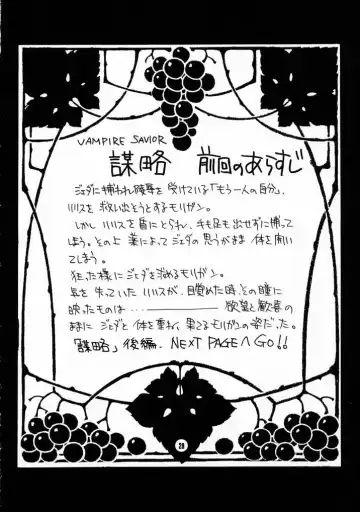 VAMPIRE SAVIOR
謀略 前回のあらすじ
ジェダに捕われ陵辱を受けている「もう一人の自分」、
リリスを救い出そうとするモリガン。
しかしリリスを盾にとられ、手も足も出せずに捕って
しまう。その上薬によってジェダの思うがまま体を開い
てしまう。
狂った様にジェダを求めるモリガン。
気を失っていたリリスが、目覚めた時、その瞳に
映ったものは…………――――欲望と歓喜の
ままにジェダと体を重ね、果てるモリガンの姿だった。
「謀略」後編、NEXT PAGEへGO!!
28